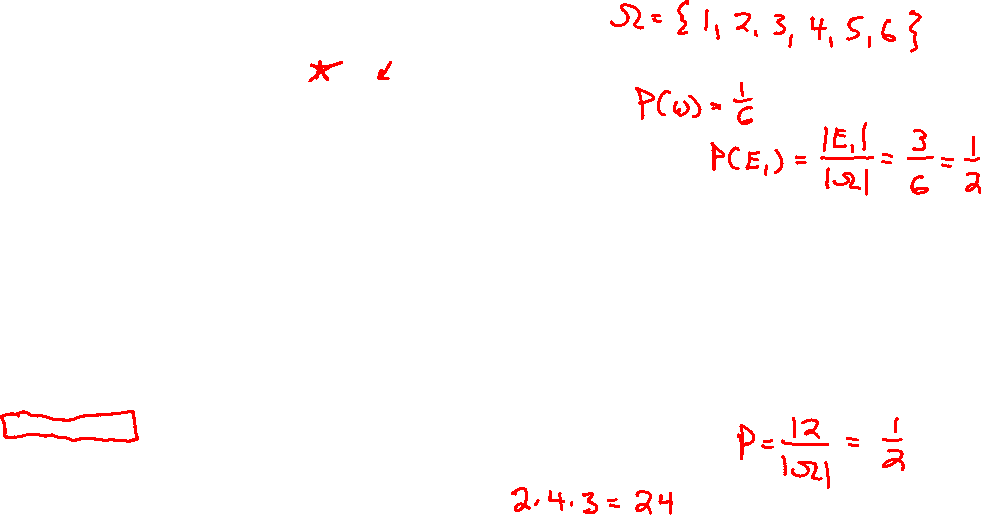 Ω = { 1, 2, 3, 4, 5, 6 }
P(ω) = 1/6
P(E₁) = |E₁|/|Ω| = 3/6 = 1/2
P = 12/|Ω| = 1/2
2·4·3 = 24